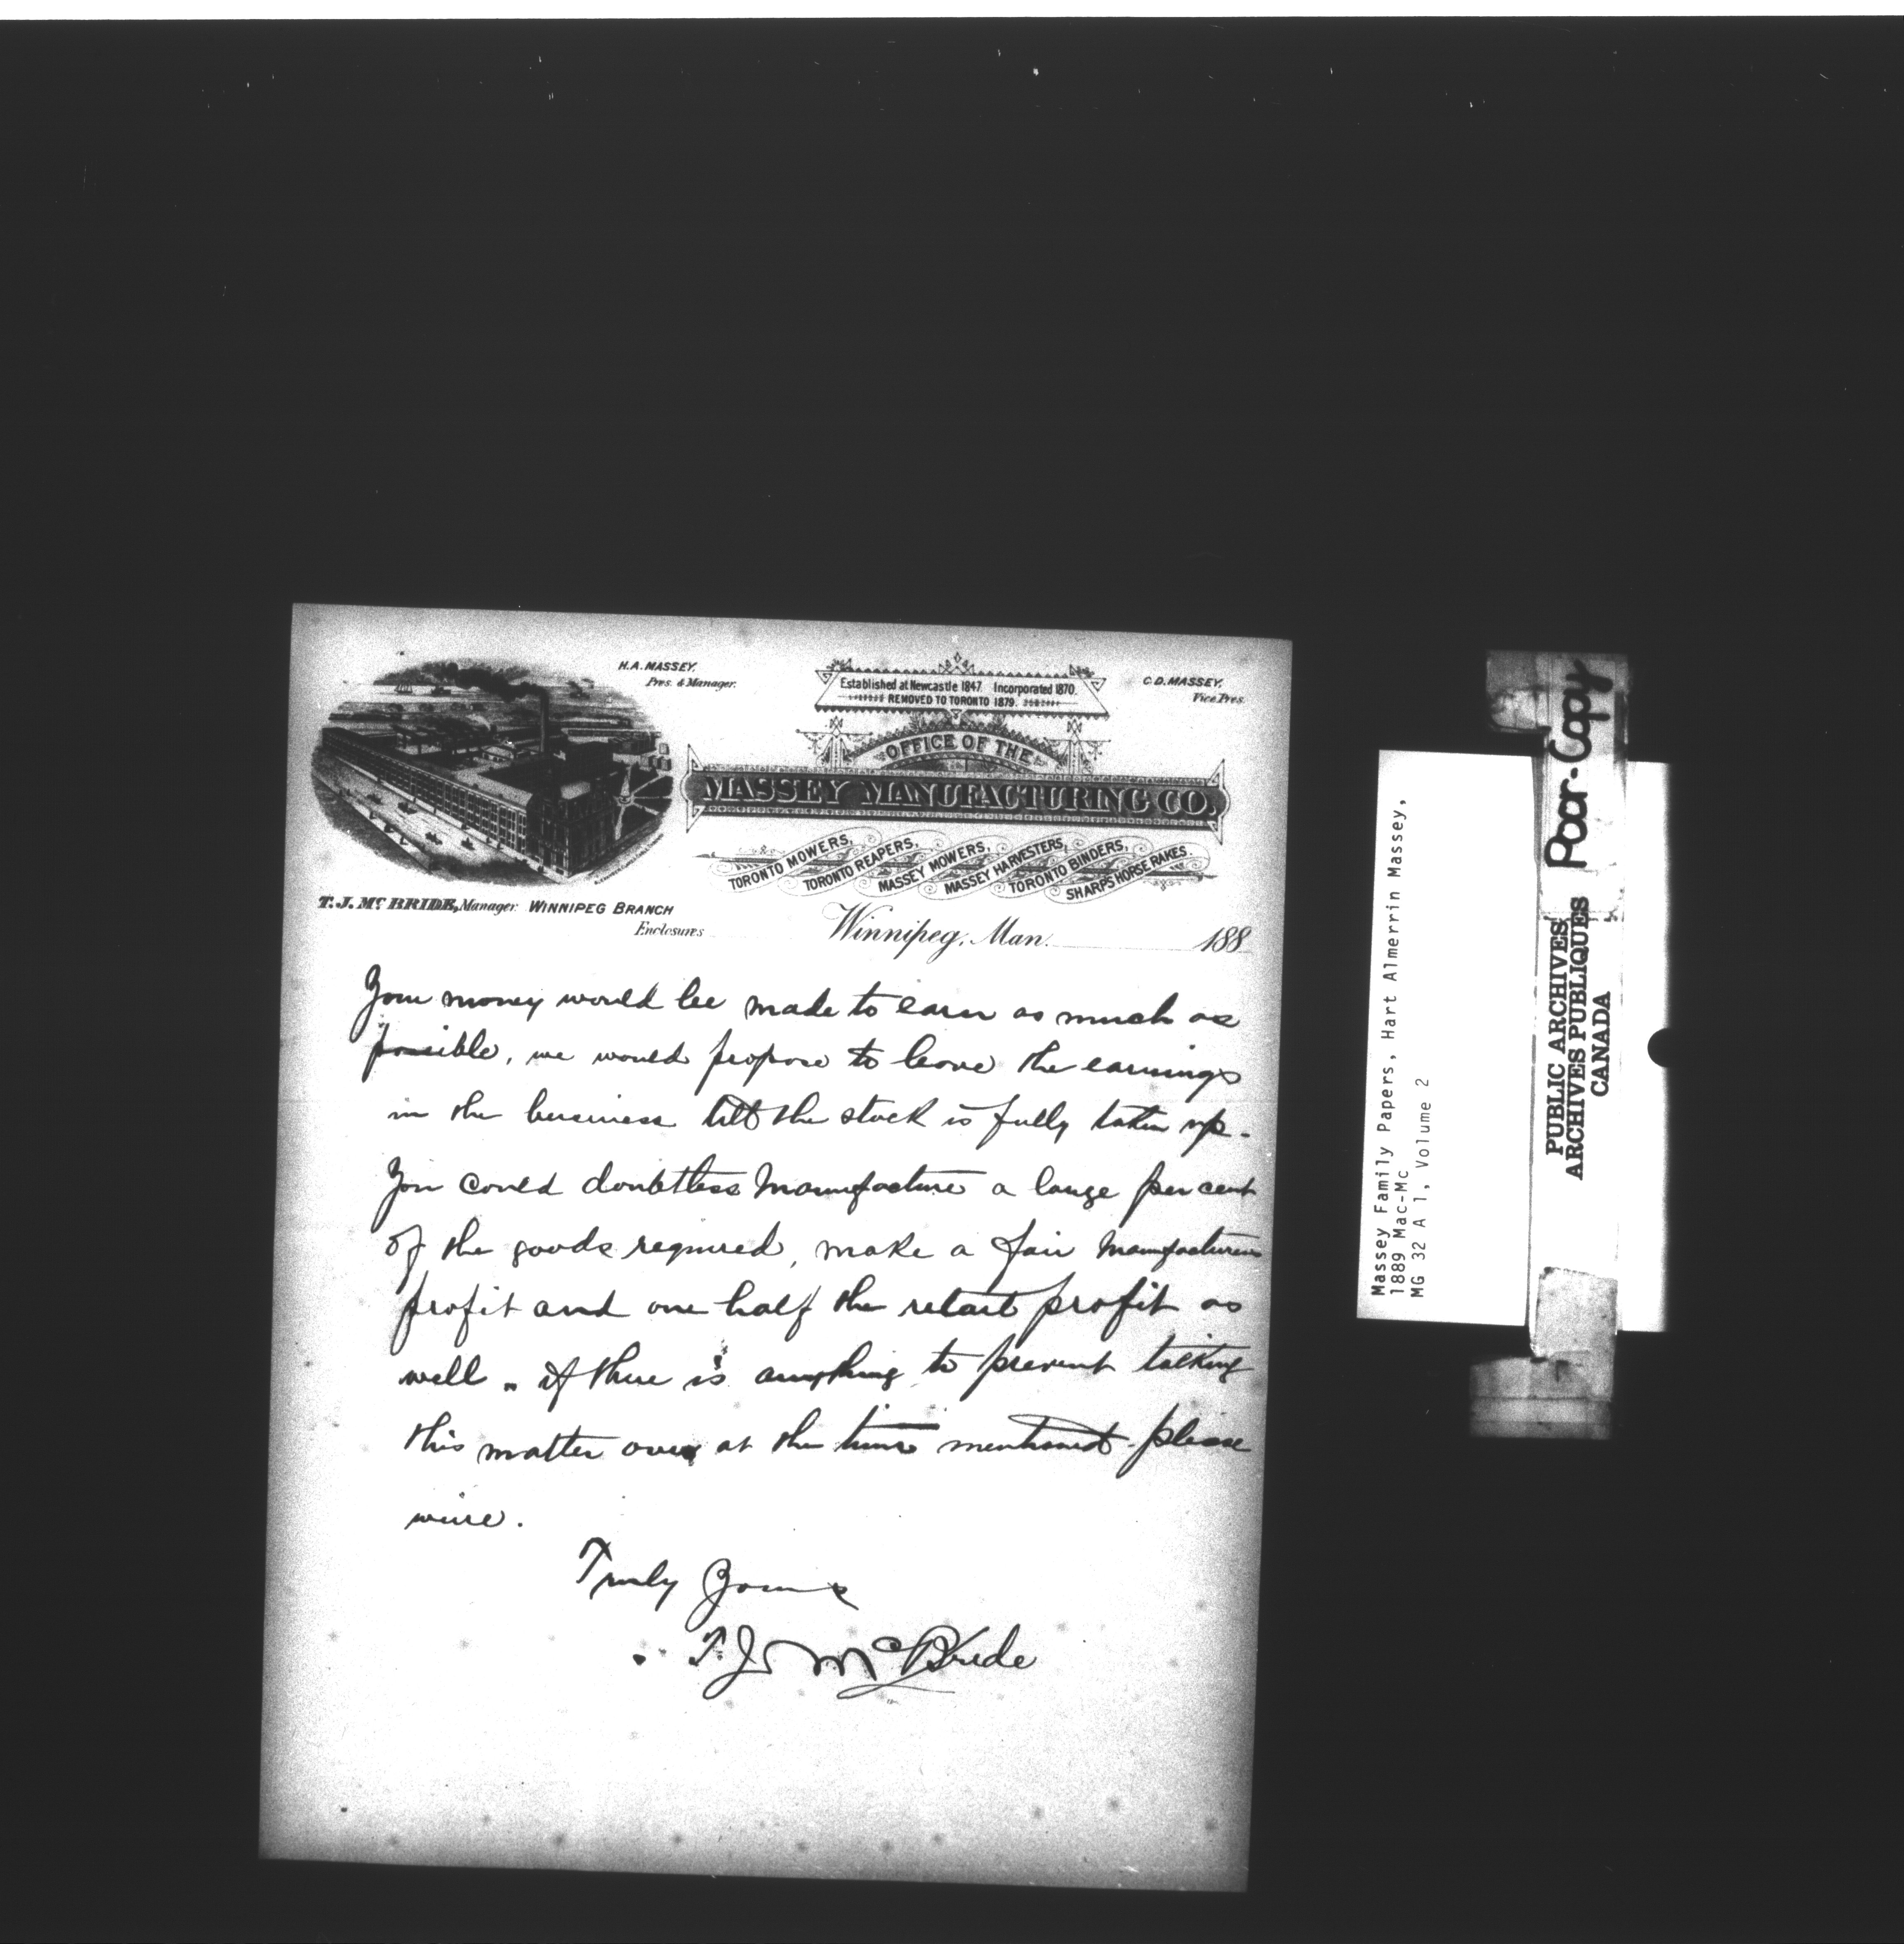 H.A. MASSEY,
Pres. & Manager.
Established at Newcastle 1847. Incorporated 1870.
REMOVED TO TORONTO 1879.
C.D. MASSEY,
Vice Pres.
OFFICE OF THE
MASSEY MANUFACTURING CO.
TORONTO MOWERS,
TORONTO REAPERS,
MASSEY MOWERS,
MASSEY HARVESTERS,
TORONTO BINDERS,
SHARPS HORSE RAKES.
T. J. Mc BRIDE, Manager. WINNIPEG BRANCH
Enclosures
Winnipeg, Man. 188
Your money would be made to earn as much as
possible, we would propose to leave the earnings
in the business till the stock is fully taken up.
You could doubtless manufacture a large per cent
of the goods required, make a fair manufacturers
profit and one half the retail profit as
well. if there is anything to prevent talking
this matter over at the time mentioned please
wire.
Truly Yours
T J McBride
Massey Family Papers, Hart Almerrin Massey,
1889 Mac-Mc
MG 32 A 1, Volume 2
PUBLIC ARCHIVES
ARCHIVES PUBLIQUES
CANADA
Poor-Copy